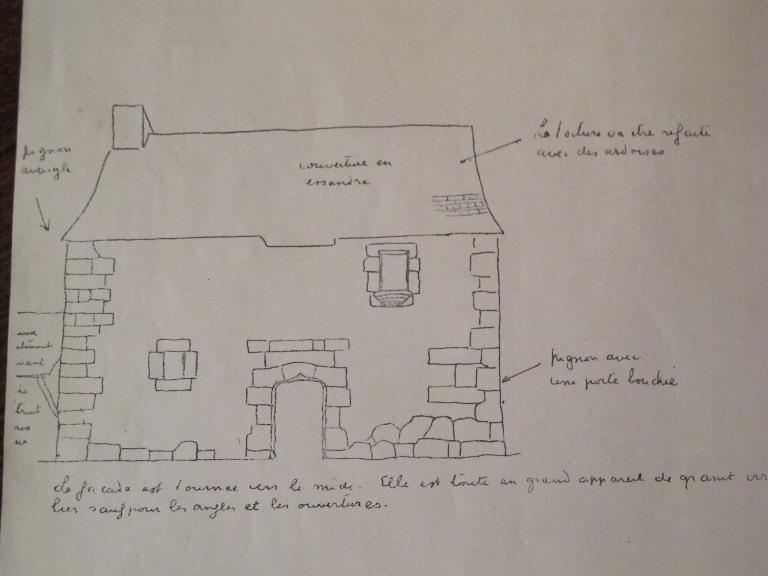 La toiture va être refaite
avec des ardoises
pignon
aveugle
couverture en
essandre
pignon avec
une porte bouchée
La façade est tournée vers le midi. Elle est toute en grand appareil de granit irré
lier sauf pour les angles et les ouvertures.